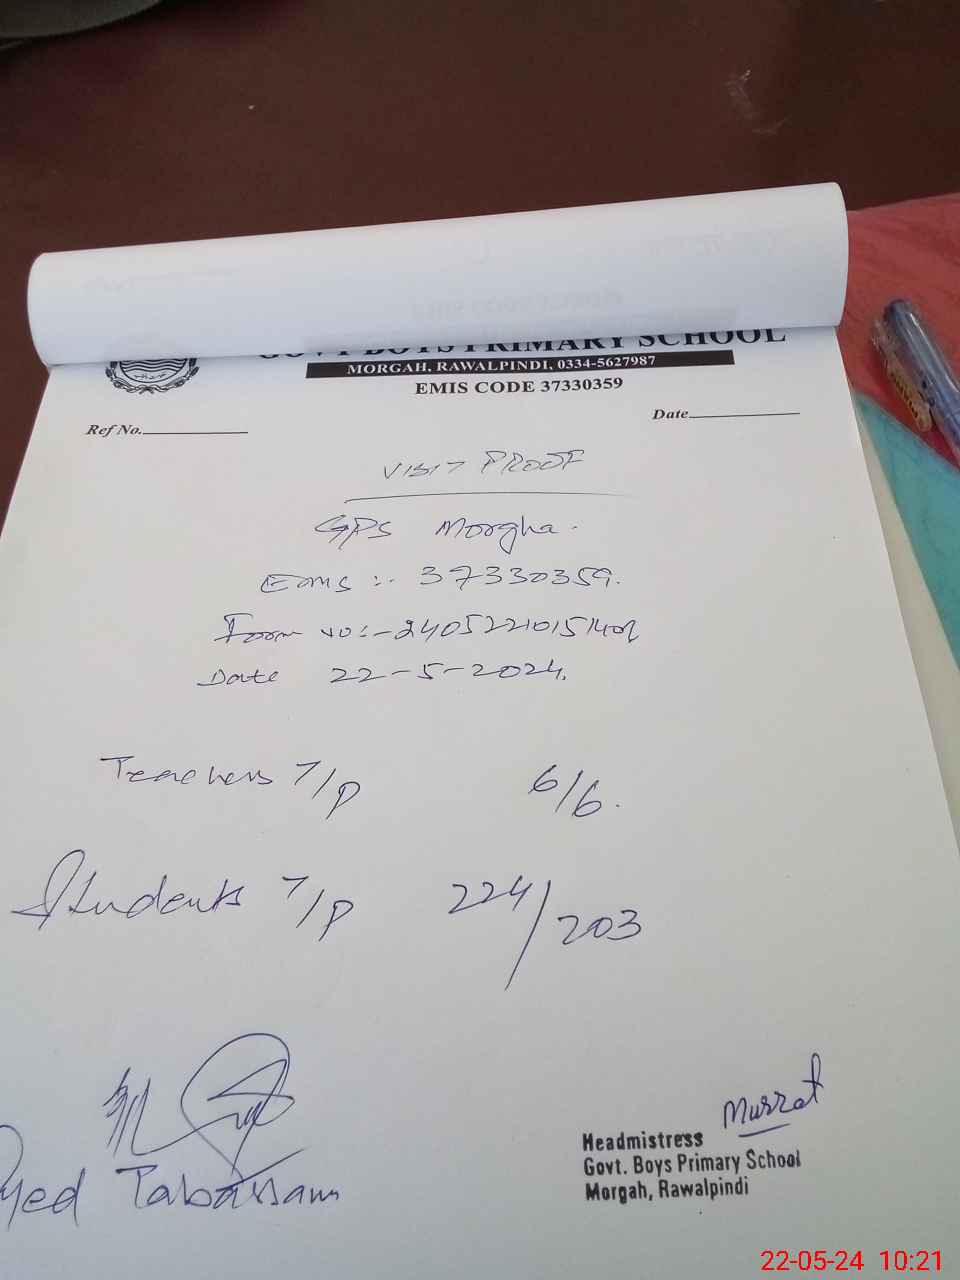 GOVT BOYS PRIMARY SCHOOL
MORGAH, RAWALPINDI, 0334-5627987
EMIS CODE 37330359
Ref No.
Date
VISIT PROOF
GPS Morgha.
Emis :- 37330359.
Form No:-
Date 22-5-2024.
Teachers T/P 6/6.
Students T/P 224/203
yed Tabassam
Mussat
Headmistress
Govt. Boys Primary School
Morgah, Rawalpindi
22-05-24 10:21